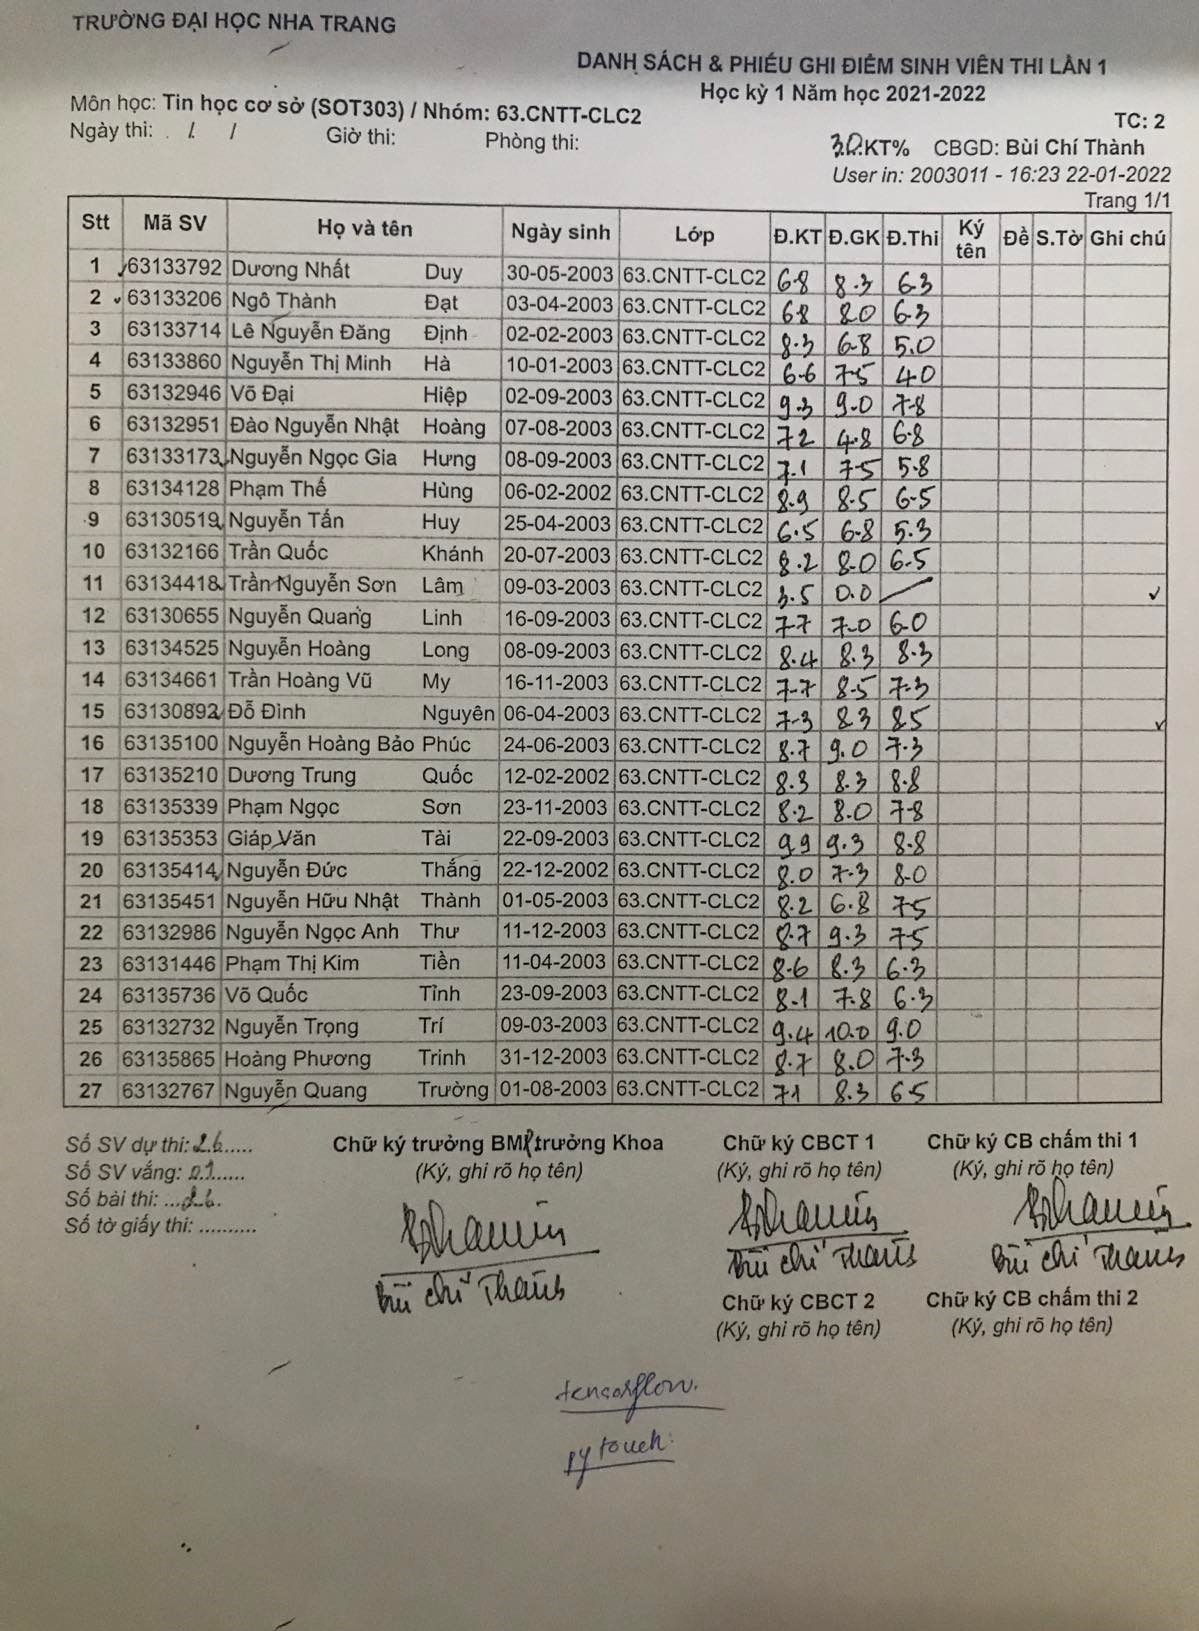 TRƯỜNG ĐẠI HỌC NHA TRANG
DANH SÁCH & PHIẾU GHI ĐIỂM SINH VIÊN THI LẦN 1
Học kỳ 1 Năm học 2021-2022
Môn học: Tin học cơ sở (SOT303) / Nhóm: 63.CNTT-CLC2
TC: 2
Ngày thi: / / Giờ thi: Phòng thi:
30.KT% CBGD: Bùi Chí Thành
User in: 2003011 - 16:23 22-01-2022
Trang 1/1
Stt Mã SV Họ và tên Ngày sinh Lớp Đ.KT Đ.GK Đ.Thi Ký tên Đề S.Tờ Ghi chú
1 63133792 Dương Nhất Duy 30-05-2003 63.CNTT-CLC2 6.8 8.3 6.3
2 63133206 Ngô Thành Đạt 03-04-2003 63.CNTT-CLC2 6.8 8.0 6.3
3 63133714 Lê Nguyễn Đăng Định 02-02-2003 63.CNTT-CLC2 8.3 6.8 5.0
4 63133860 Nguyễn Thị Minh Hà 10-01-2003 63.CNTT-CLC2 6.6 7.5 4.0
5 63132946 Võ Đại Hiệp 02-09-2003 63.CNTT-CLC2 9.3 9.0 7.8
6 63132951 Đào Nguyễn Nhật Hoàng 07-08-2003 63.CNTT-CLC2 7.2 4.8 6.8
7 63133173 Nguyễn Ngọc Gia Hưng 08-09-2003 63.CNTT-CLC2 7.1 7.5 5.8
8 63134128 Phạm Thế Hùng 06-02-2002 63.CNTT-CLC2 8.9 8.5 6.5
9 63130519 Nguyễn Tấn Huy 25-04-2003 63.CNTT-CLC2 6.5 6.8 5.3
10 63132166 Trần Quốc Khánh 20-07-2003 63.CNTT-CLC2 8.2 8.0 6.5
11 63134418 Trần Nguyễn Sơn Lâm 09-03-2003 63.CNTT-CLC2 3.5 0.0 / ✓
12 63130655 Nguyễn Quang Linh 16-09-2003 63.CNTT-CLC2 7.7 7.0 6.0
13 63134525 Nguyễn Hoàng Long 08-09-2003 63.CNTT-CLC2 8.4 8.3 8.3
14 63134661 Trần Hoàng Vũ My 16-11-2003 63.CNTT-CLC2 7.7 8.5 7.3
15 63130892 Đỗ Đình Nguyên 06-04-2003 63.CNTT-CLC2 7.3 8.3 8.5 ✓
16 63135100 Nguyễn Hoàng Bảo Phúc 24-06-2003 63.CNTT-CLC2 8.7 9.0 7.3
17 63135210 Dương Trung Quốc 12-02-2002 63.CNTT-CLC2 8.3 8.3 8.8
18 63135339 Phạm Ngọc Sơn 23-11-2003 63.CNTT-CLC2 8.2 8.0 7.8
19 63135353 Giáp Văn Tài 22-09-2003 63.CNTT-CLC2 9.9 9.3 8.8
20 63135414 Nguyễn Đức Thắng 22-12-2002 63.CNTT-CLC2 8.0 7.3 8.0
21 63135451 Nguyễn Hữu Nhật Thành 01-05-2003 63.CNTT-CLC2 8.2 6.8 7.5
22 63132986 Nguyễn Ngọc Anh Thư 11-12-2003 63.CNTT-CLC2 8.7 9.3 7.5
23 63131446 Phạm Thị Kim Tiền 11-04-2003 63.CNTT-CLC2 8.6 8.3 6.3
24 63135736 Võ Quốc Tĩnh 23-09-2003 63.CNTT-CLC2 8.1 7.8 6.3
25 63132732 Nguyễn Trọng Trí 09-03-2003 63.CNTT-CLC2 9.4 10.0 9.0
26 63135865 Hoàng Phương Trinh 31-12-2003 63.CNTT-CLC2 8.7 8.0 7.3
27 63132767 Nguyễn Quang Trường 01-08-2003 63.CNTT-CLC2 7.1 8.3 6.5
Số SV dự thi: 26 Chữ ký trưởng BM/trưởng Khoa Chữ ký CBCT 1 Chữ ký CB chấm thi 1
Số SV vắng: 01 (Ký, ghi rõ họ tên) (Ký, ghi rõ họ tên) (Ký, ghi rõ họ tên)
Số bài thi: 26
Số tờ giấy thi: ..........
Bùi Chí Thành Bùi Chí Thành Bùi Chí Thành
Chữ ký CBCT 2 Chữ ký CB chấm thi 2
(Ký, ghi rõ họ tên) (Ký, ghi rõ họ tên)
tensorflow.
pytouch.